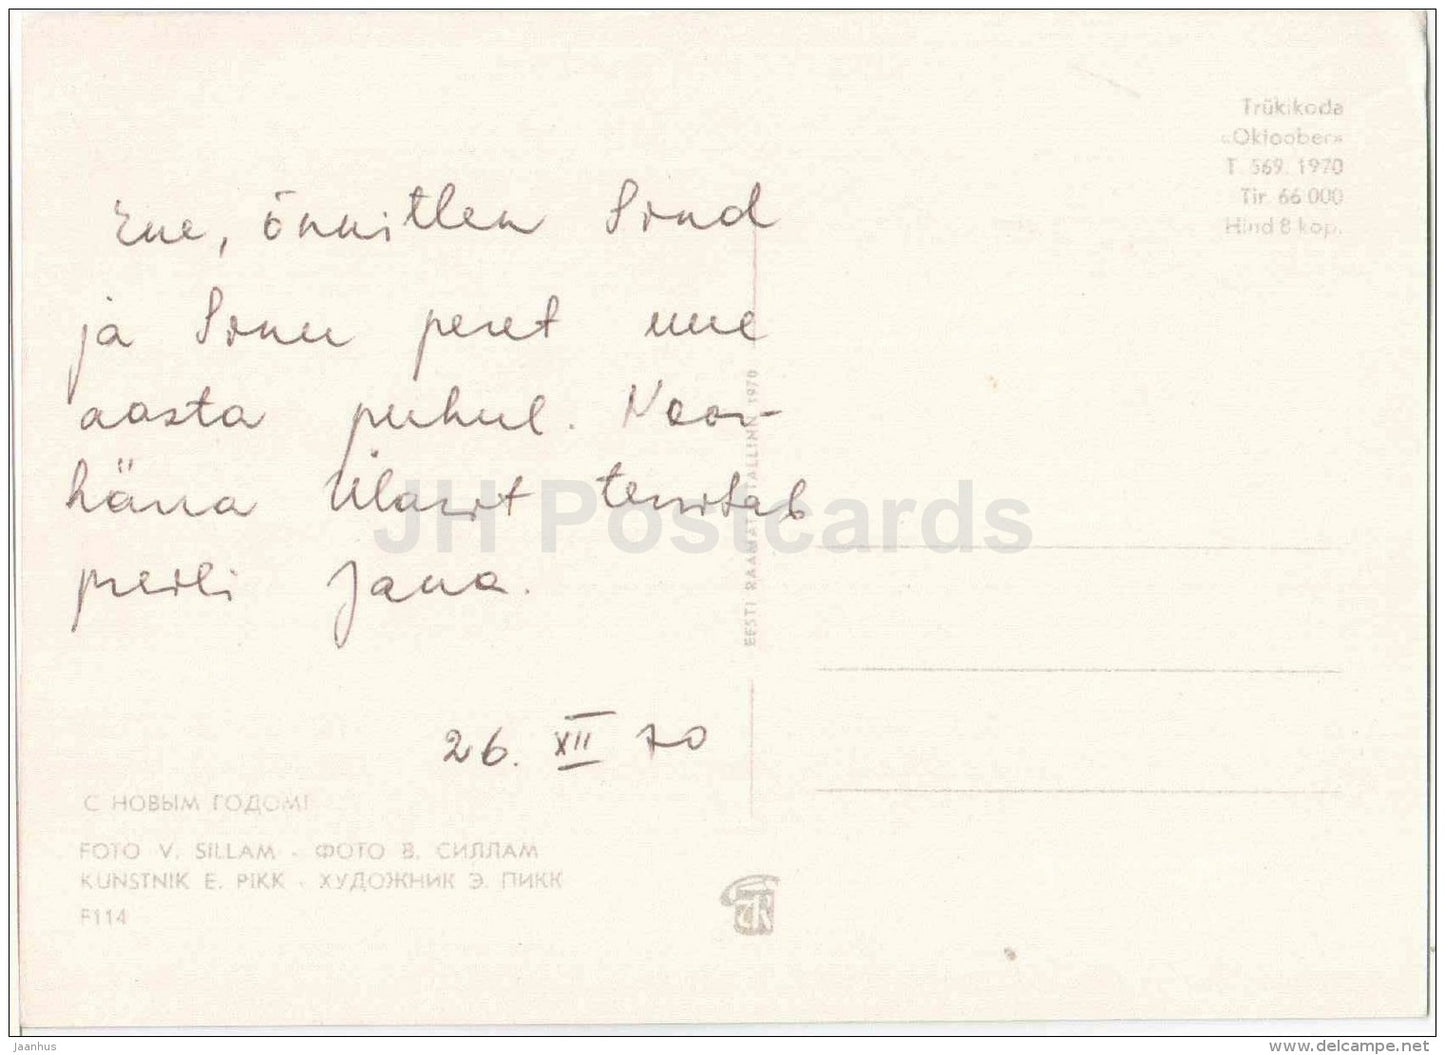 Ene, õnnitlen Sind
ja Sinu peret uue
aasta puhul. Noor-
härra Ülarit tervitab
preili Jana.
26. XII 70
С НОВЫМ ГОДОМ!
FOTO V. SILLAM - ФОТО В. СИЛЛАМ
KUNSTNIK E. PIKK - ХУДОЖНИК Э. ПИКК
F114
EESTI RAAMAT TALLINN 1970
Trükikoda
«Oktoober»
T. 569. 1970
Tir. 66 000
Hind 8 kop.
JH Postcards
Jaanhus
www.delcampe.net